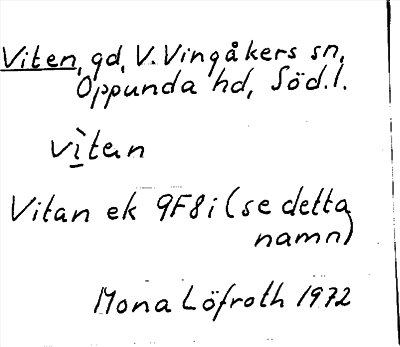 Viten, gd, V. Vingåkers sn,
Oppunda hd, Söd.l.
vìtan
Vitan ek 9F8i (se detta
namn)
Mona Löfroth 1972